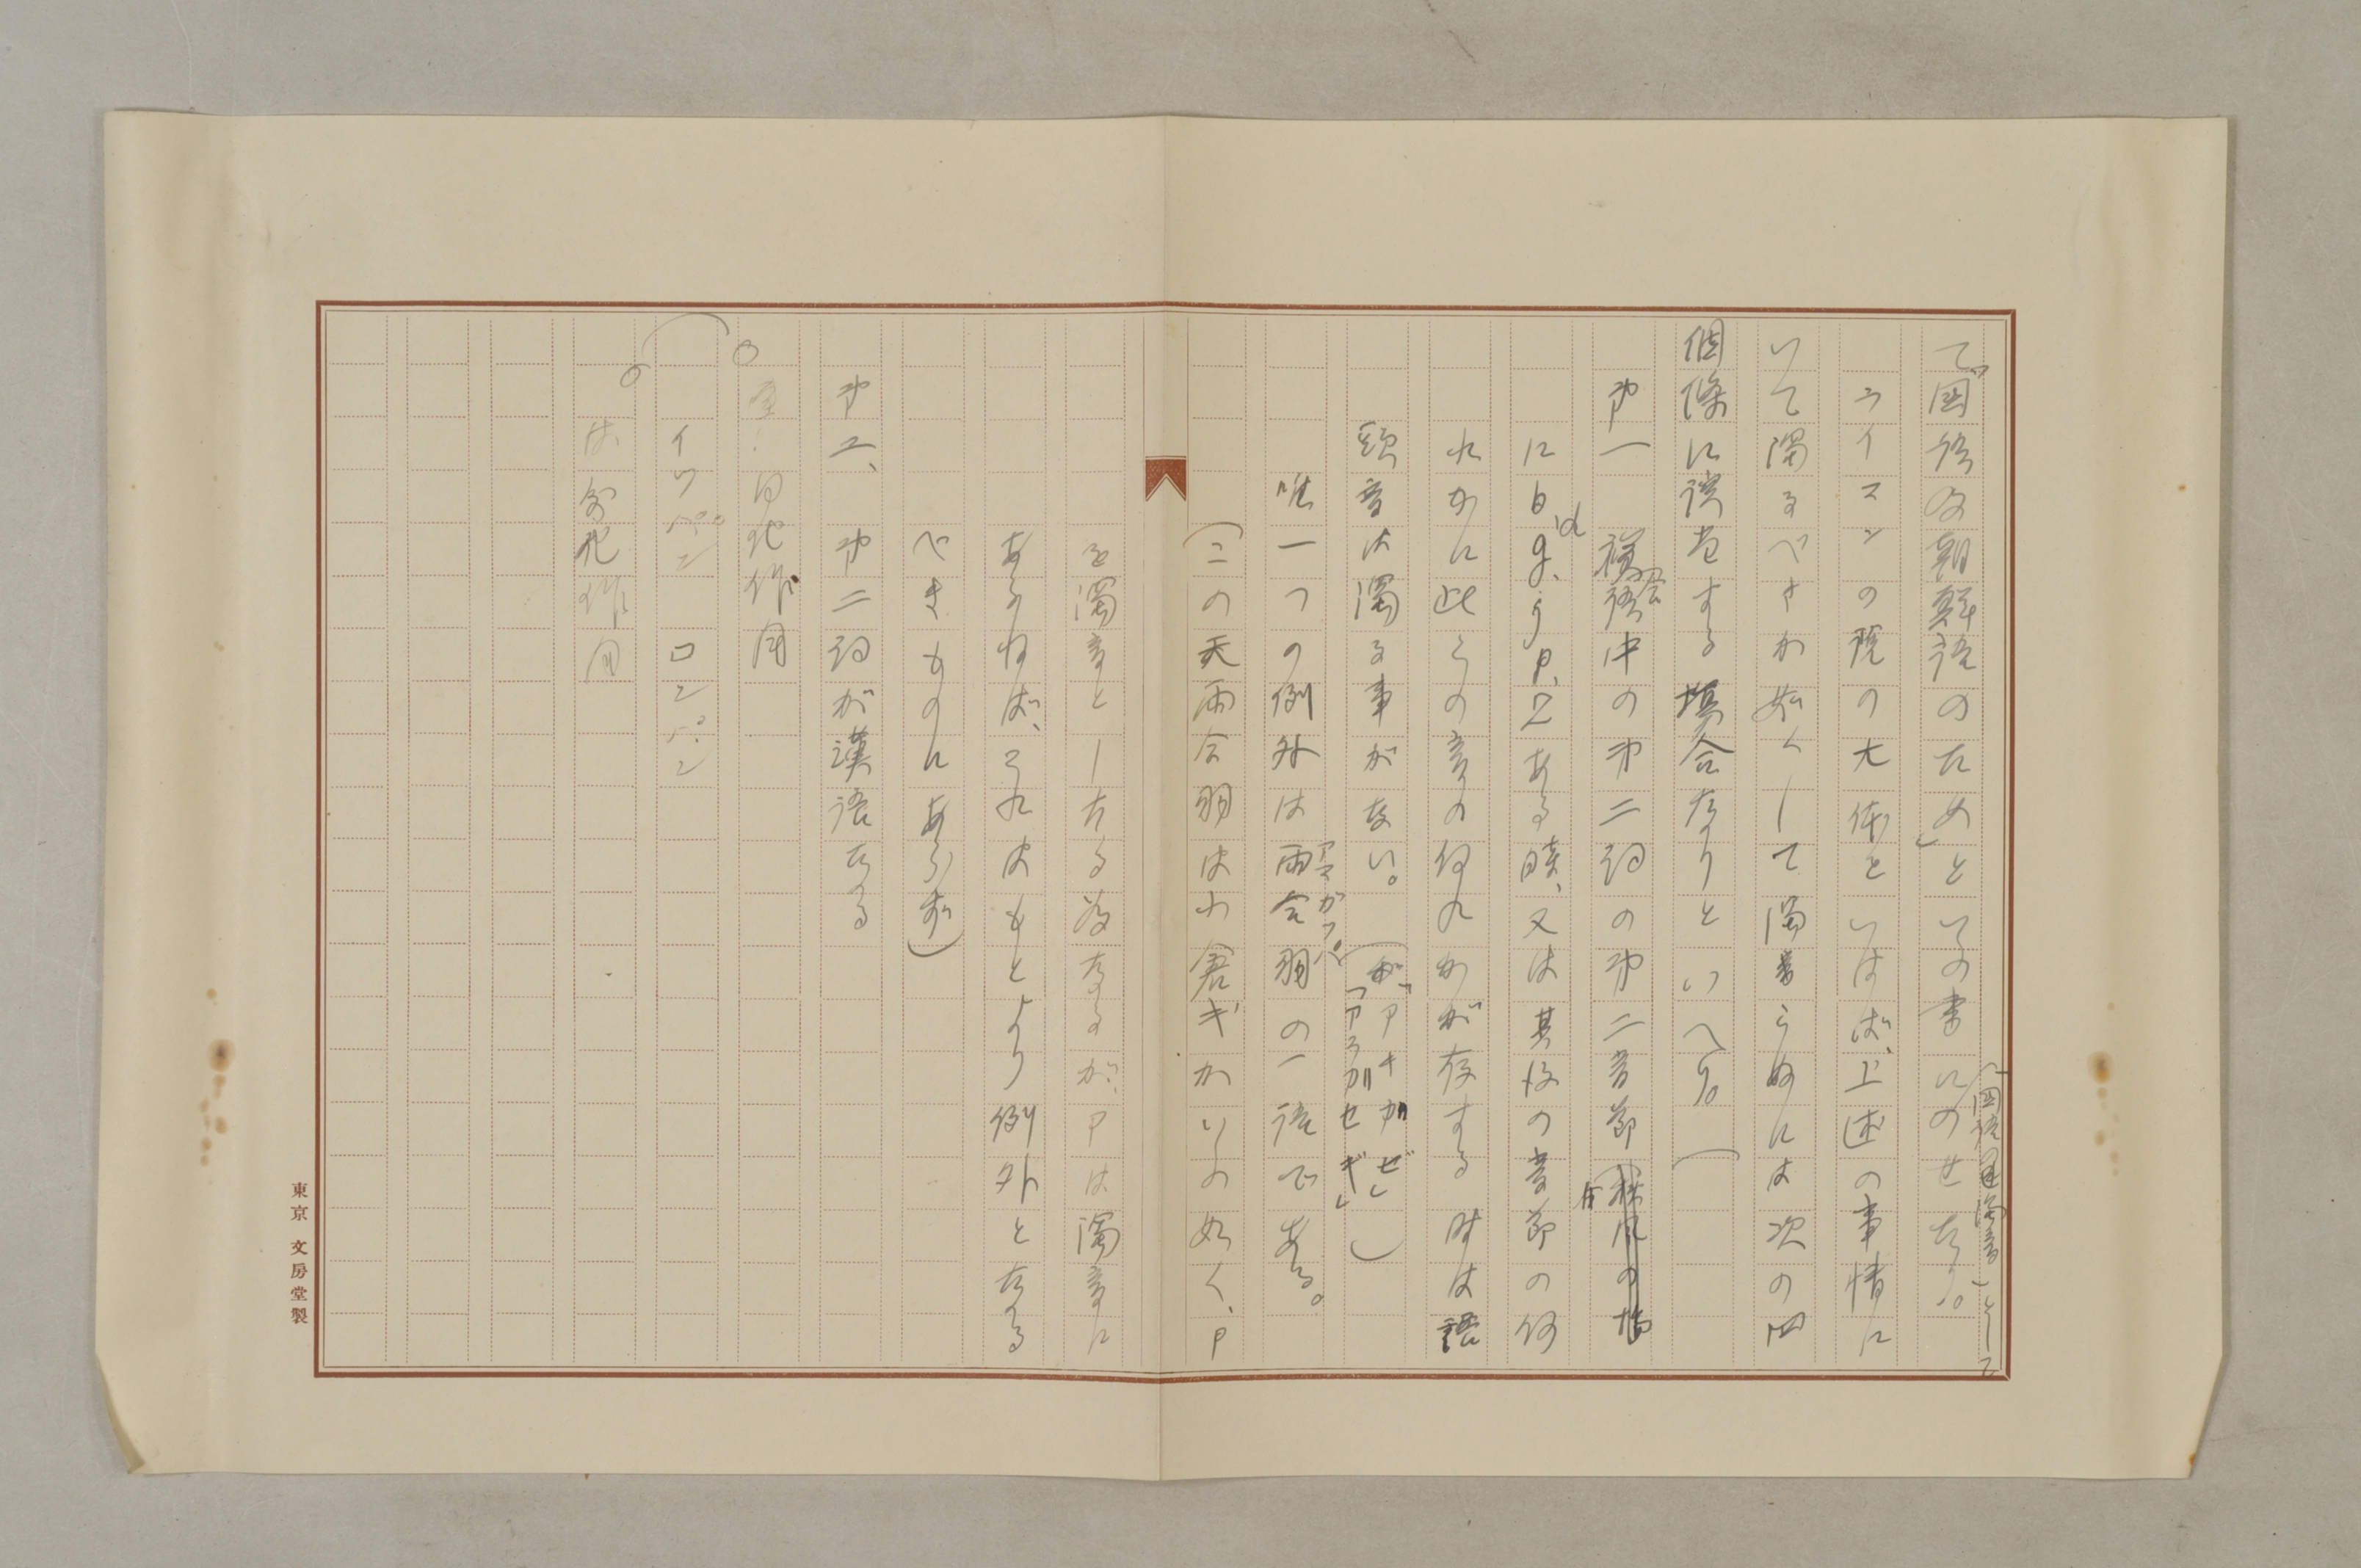 で「国語及朝鮮語のため」といふ書にのせたり。
(国語連濁音)として
ライマンの説の大体をいはば、上述の事情に
いて濁るべきか如くして濁音うけぬには次の四
個條に該当する塲合なりといへり。
第一 複合語中の第二詞の第二音節
にb、d、g、j、p、zある時、又は其後の音節の何
れかに此らの音の何れかが存する時は語
頭音は濁る事がない。(「アキカゼ」「アラカセギ」)
唯一つの例外は雨合羽の一語である。
アマガッパ
(この天雨合羽は小倉ギかいしの如く、P
を濁音としたる為なるが、Pは濁音に
あらねば、これはもとより例外となる
べきものにあらず)
第二、第二詞が漢語なる
同化作用
イッペン ロンペン
は 異化作用
東京 文房堂製